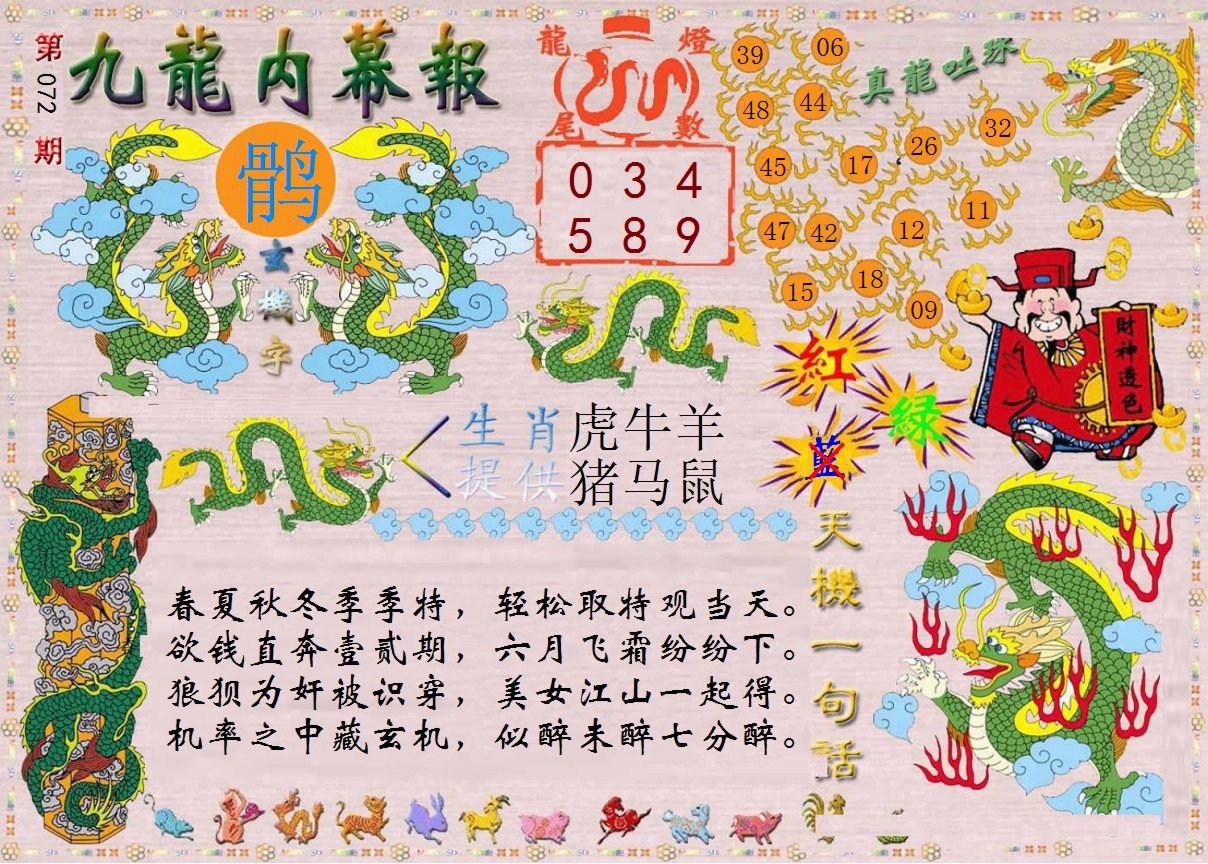 第072期
九龍内幕報
鹘
玄機字
龍燈
尾數
0 3 4
5 8 9
真龍吐珠
39
06
48
44
45
17
26
32
47
42
12
11
15
18
09
財神透色
紅
綠
藍
生肖提供
虎牛羊
猪马鼠
天機一句話
春夏秋冬季季特，轻松取特观当天。
欲钱直奔壹贰期，六月飞霜纷纷下。
狼狈为奸被识穿，美女江山一起得。
机率之中藏玄机，似醉未醉七分醉。